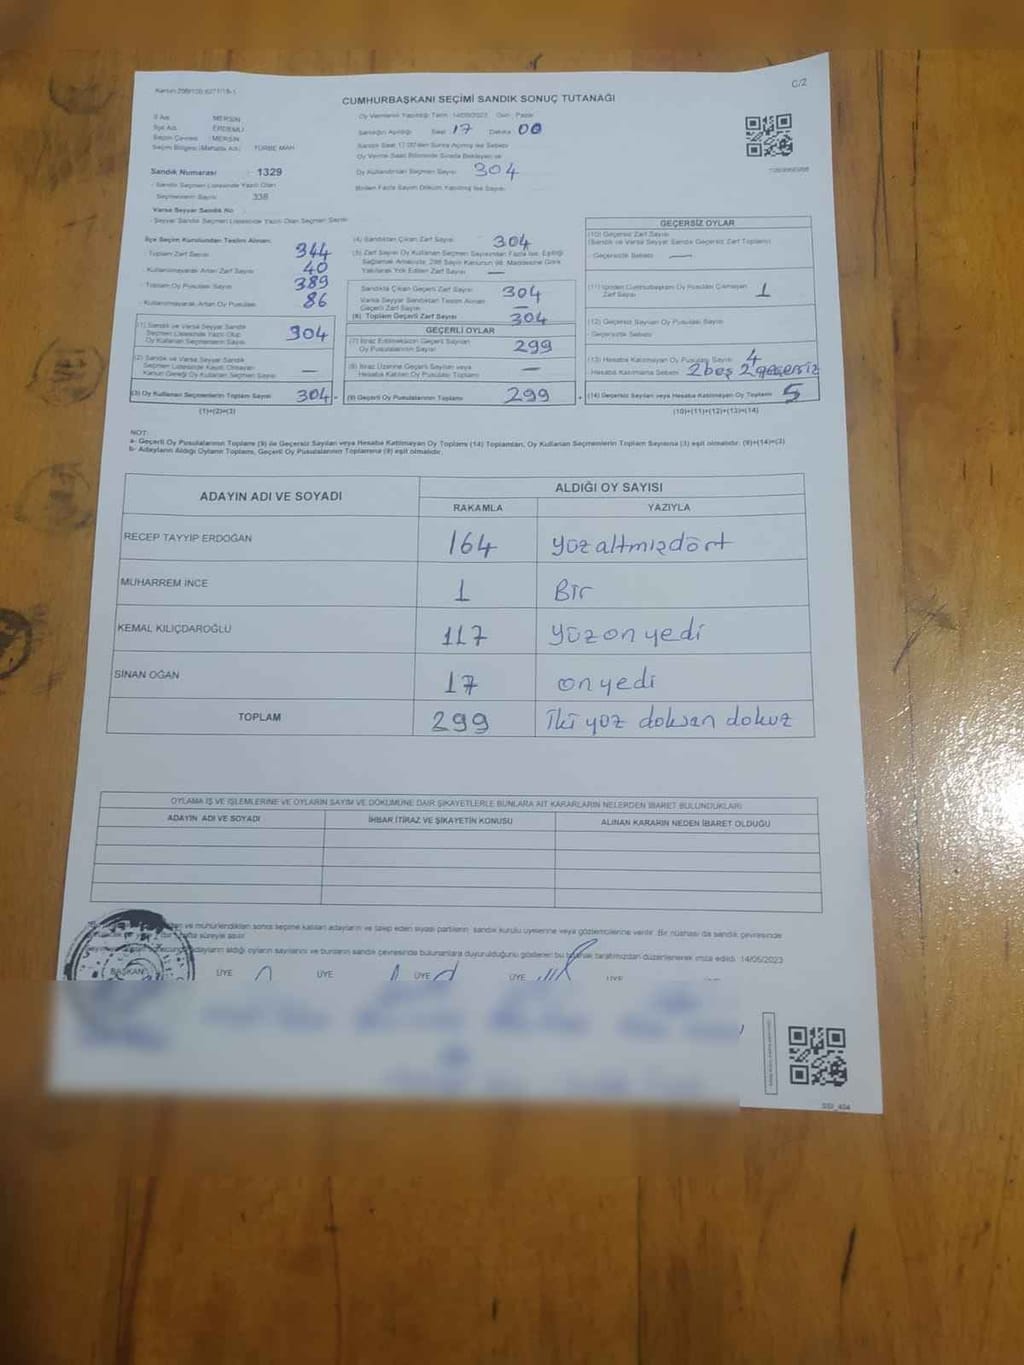 C/2
CUMHURBAŞKANI SEÇİMİ SANDIK SONUÇ TUTANAĞI
İl Adı : MERSİN
İlçe Adı : ERDEMLİ
Seçim Çevresi : MERSİN
Seçim Bölgesi (Mahalle Adı) : TÜRBE MAH
Sandık Numarası : 1329
- Sandık Seçmen Listesinde Yazılı Olan
Seçmenlerin Sayısı : 338
Varsa Seyyar Sandık No
- Seyyar Sandık Seçmen Listesinde Yazılı Olan Seçmen Sayısı
Oy Verme Saati Bitiminde Sırada Bekleyen ve
Oy Kullandırılan Seçmen Sayısı 304
Sandığın Açıldığı Saat 17 Dakika 00
Birden Fazla Sayım Döküm Yapılmış İse Sayısı
İlçe Seçim Kurulundan Teslim Alınan;
- Toplam Zarf Sayısı 344
- Kullanılmayarak Artan Zarf Sayısı 40
- Toplam Oy Pusulası Sayısı 389
- Kullanılmayarak Artan Oy Pusulası 86
(1) Sandık ve Varsa Seyyar Sandık
Seçmen Listesinde Yazılı Olup
Oy Kullanan Seçmenlerin Sayısı 304
(2) Sandık ve Varsa Seyyar Sandık
Seçmen Listesinde Kayıtlı Olmayan
Kanun Gereği Oy Kullanan Seçmen Sayısı —
(3) Oy Kullanan Seçmenlerin Toplam Sayısı 304
(1)+(2)=(3)
(4) Sandıktan Çıkan Zarf Sayısı 304
(5) Zarf Sayısı Oy Kullanan Seçmen Sayısından Fazla ise, Eşitliği
Sağlamak Amacıyla; 298 Sayılı Kanunun 98. Maddesine Göre
Yakılarak Yok Edilen Zarf Sayısı —
Sandıkta Çıkan Geçerli Zarf Sayısı 304
Varsa Seyyar Sandıktan Teslim Alınan
Geçerli Zarf Sayısı —
(6) Toplam Geçerli Zarf Sayısı 304
GEÇERLİ OYLAR
(7) İtiraz Edilmeksizin Geçerli Sayılan
Oy Pusulasının Sayısı 299
(8) İtiraz Üzerine Geçerli Sayılan veya
Hesaba Katılan Oy Pusulası Toplamı —
(9) Geçerli Oy Pusulalarının Toplamı 299
GEÇERSİZ OYLAR
(10) Geçersiz Zarf Sayısı
(Sandık ve Varsa Seyyar Sandık Geçersiz Zarf Toplamı)
- Geçersizlik Sebebi —
(11) İçinden Cumhurbaşkanı Oy Pusulası Çıkmayan
Zarf Sayısı 1
(12) Geçersiz Sayılan Oy Pusulası Sayısı
- Geçersizlik Sebebi
(13) Hesaba Katılmayan Oy Pusulası Sayısı 4
- Hesaba Katılmama Sebebi 2 boş 2 geçersiz
(14) Geçersiz Sayılan veya Hesaba Katılmayan Oy Toplamı 5
(10)+(11)+(12)+(13)=(14)
NOT:
a- Geçerli Oy Pusulalarının Toplamı (9) ile Geçersiz Sayılan veya Hesaba Katılmayan Oy Toplamı (14) Toplamları, Oy Kullanan Seçmenlerin Toplam Sayısına (3) eşit olmalıdır. (9)+(14)=(3)
b- Adayların Aldığı Oyların Toplamı, Geçerli Oy Pusulalarının Toplamına (9) eşit olmalıdır.
ADAYIN ADI VE SOYADI ALDIĞI OY SAYISI
RAKAMLA YAZIYLA
RECEP TAYYİP ERDOĞAN 164 yüzaltmışdört
MUHARREM İNCE 1 Bir
KEMAL KILIÇDAROĞLU 117 yüzonyedi
SİNAN OĞAN 17 onyedi
TOPLAM 299 İki yüz doksan dokuz
OYLAMA İŞ VE İŞLEMLERİNE VE OYLARIN SAYIM VE DÖKÜMÜNE DAİR ŞİKAYETLERLE BUNLARA AİT KARARLARIN NELERDEN İBARET BULUNDUKLARI
ADAYIN ADI VE SOYADI İHBAR İTİRAZ VE ŞİKAYETİN KONUSU ALINAN KARARIN NEDEN İBARET OLDUĞU
ve mühürlendikten sonra seçime katılan adayların ve talep eden siyasi partilerin sandık kurulu üyelerine veya gözlemcilerine verilir. Bir nüshası da sandık çevresinde
adayların aldığı oyların sayılarını ve bunların sandık çevresinde bulunanlara duyurulduğunu gösteren bu tutanak tarafımızdan düzenlenerek imza edildi. 14/05/2023
BAŞKAN ÜYE ÜYE ÜYE ÜYE ÜYE